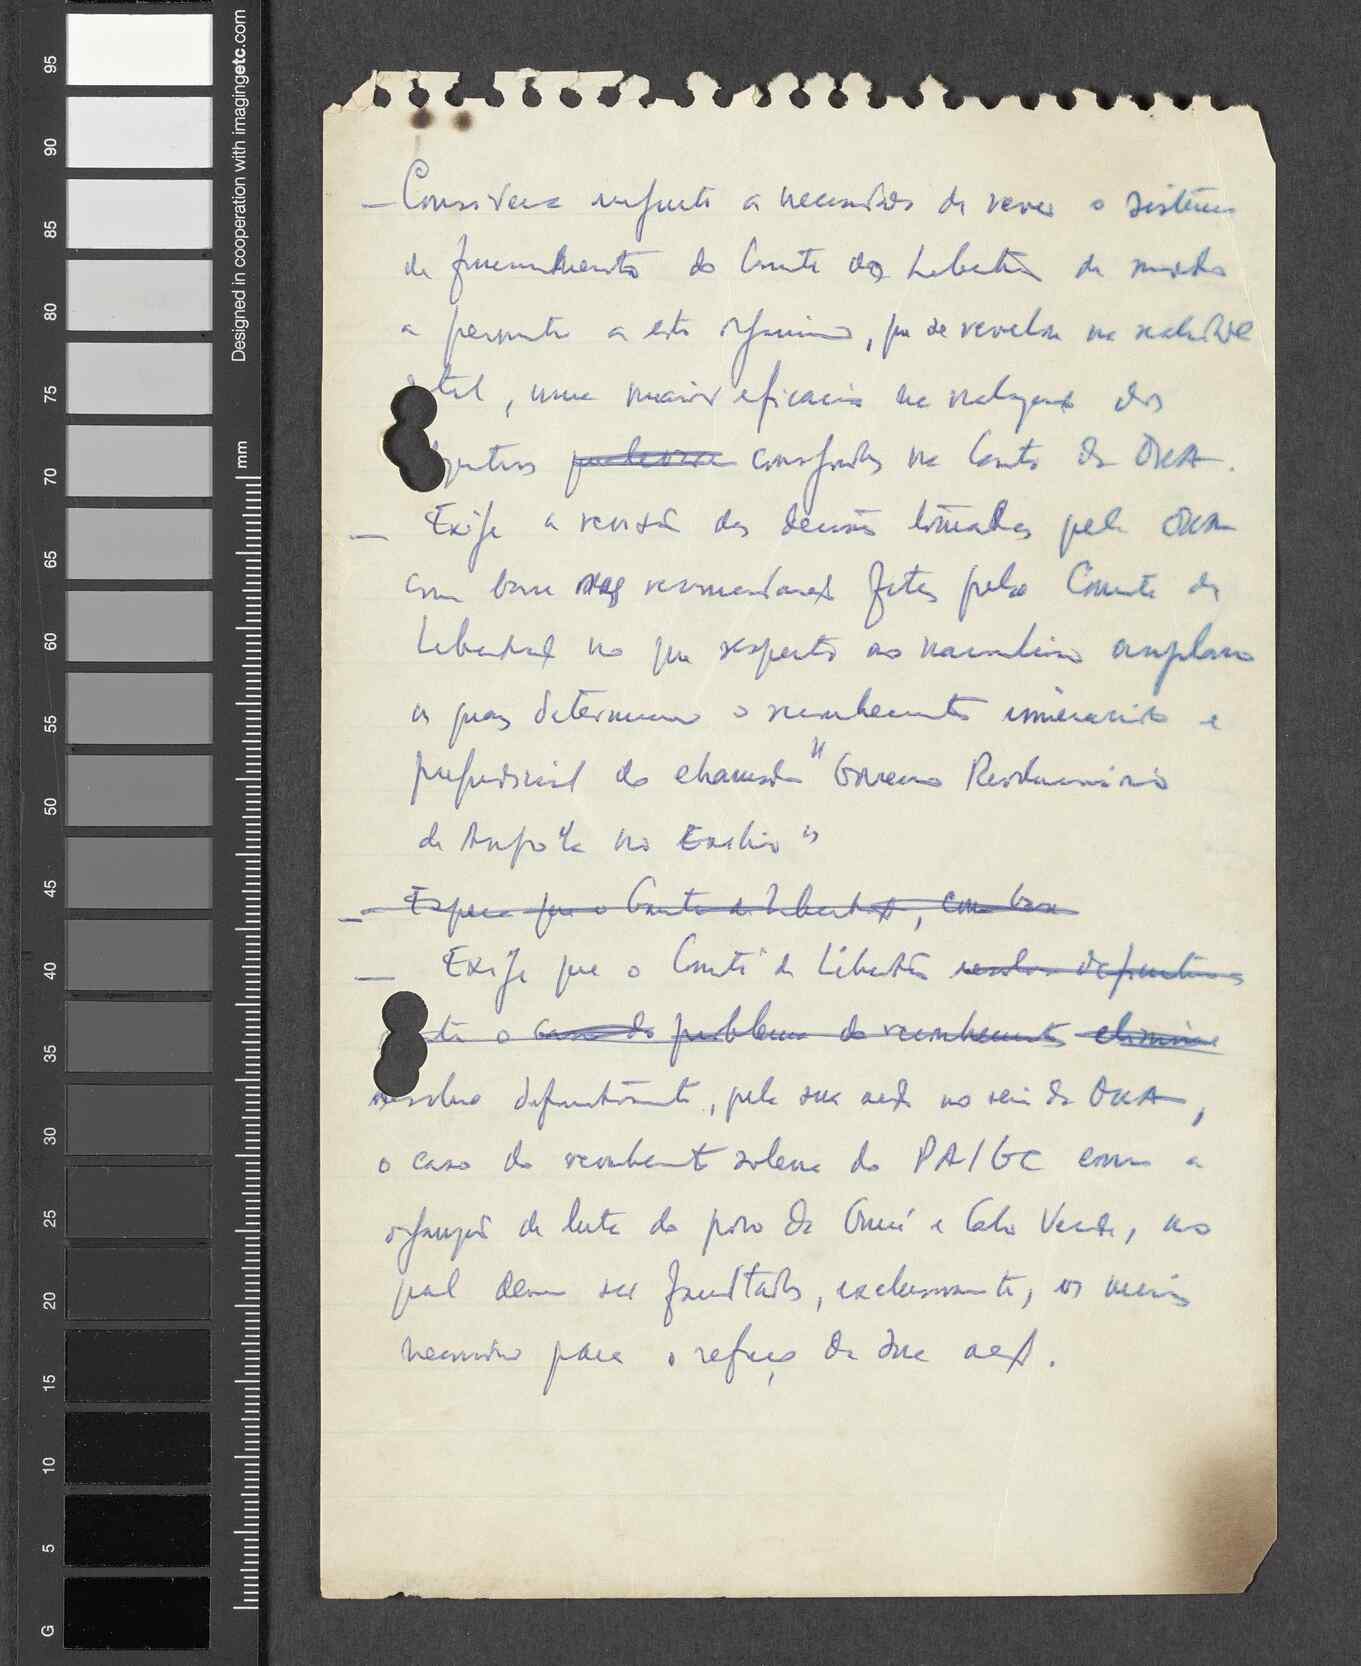 95
90
85
80
75
70
65
60
55
50
45
40
35
30
25
20
15
10
5
G
mm
Designed in cooperation with imagingetc.com
— Considera urgente a necessidade de rever o sistema
de funcionamento do Comité de Libertação de modo
a permitir a este organismo, que se revelou na realidade
útil, uma maior eficácia na realização dos
consignados na Carta da OUA.
— Exige a revisão das decisões tomadas pela OUA
com base nas recomendações feitas pelo Comité de
Libertação no que respeita ao nacionalismo angolano
as quais determinaram o reconhecimento e
prejudicial do chamado "Governo Revolucionário
de Angola no Exílio"
— Espera que o Comité de Libertação, com base
— Exige que o Comité de Libertação resolva definitiva
o caso do problema do reconhecimento
resolva definitivamente, pela sua acção no seio da OUA,
o caso do reconhecimento solene do PAIGC como a
organização de luta do povo da Guiné e Cabo Verde, ao
qual devem ser facultados, exclusivamente, os meios
necessários para o reforço da sua acção.